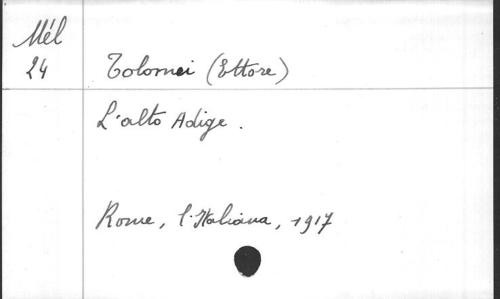 Mél
24
Tolomei (Ettore)
L'alto Adige.
Rome, l'Italiana, 1917